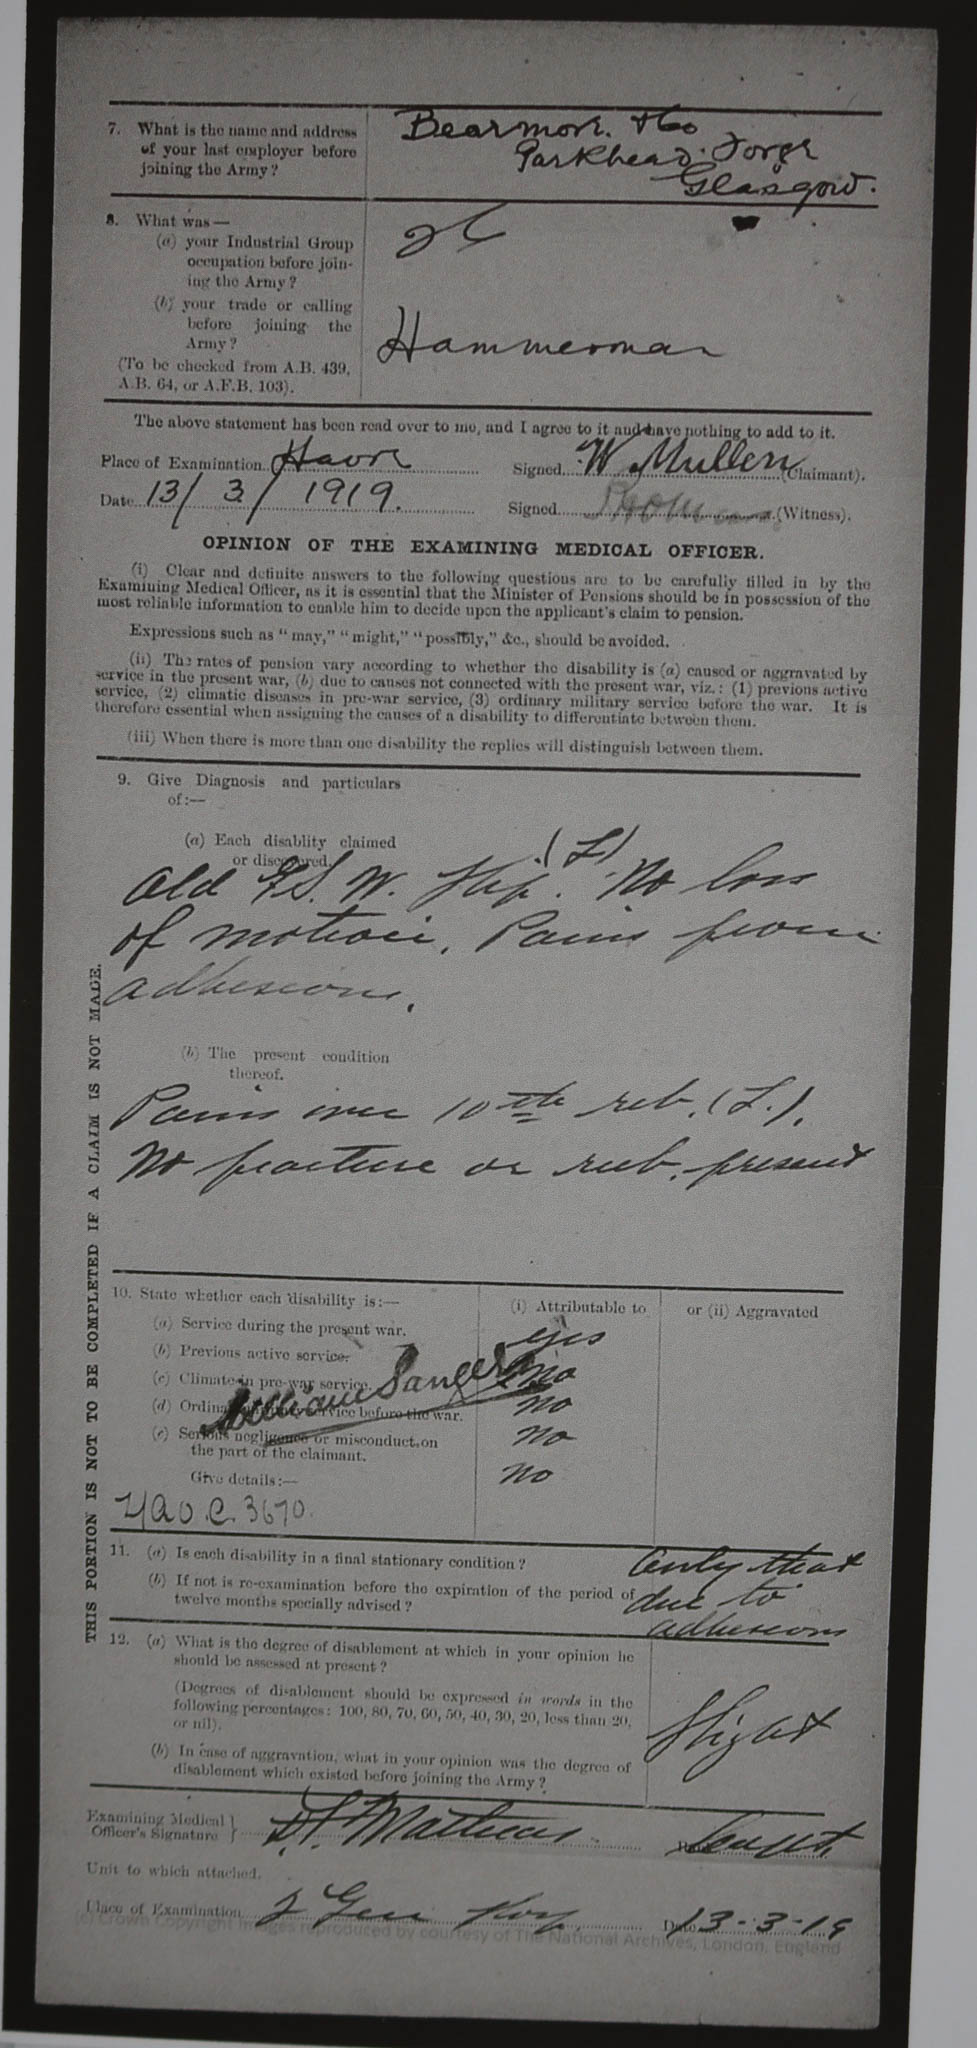 7. What is the name and address
of your last employer before
joining the Army?
Bearmore. & Co
Parkhead. Forge
Glasgow.
8. What was—
(a) your Industrial Group
occupation before join-
ing the Army?
26
(b) your trade or calling
before joining the
Army?
Hammerman
(To be checked from A.B. 439,
A.B. 64, or A.F.B. 103).
The above statement has been read over to me, and I agree to it and have nothing to add to it.
Place of Examination Havre Signed W. Mullen (Claimant).
Date 13/3/1919. Signed (Witness).
OPINION OF THE EXAMINING MEDICAL OFFICER.
(i) Clear and definite answers to the following questions are to be carefully filled in by the
Examining Medical Officer, as it is essential that the Minister of Pensions should be in possession of the
most reliable information to enable him to decide upon the applicant's claim to pension.
Expressions such as "may," "might," "possibly," &c., should be avoided.
(ii) The rates of pension vary according to whether the disability is (a) caused or aggravated by
service in the present war, (b) due to causes not connected with the present war, viz.: (1) previous active
service, (2) climatic diseases in pre-war service, (3) ordinary military service before the war. It is
therefore essential when assigning the causes of a disability to differentiate between them.
(iii) When there is more than one disability the replies will distinguish between them.
THIS PORTION IS NOT TO BE COMPLETED IF A CLAIM IS NOT MADE.
9. Give Diagnosis and particulars
of:—
(a) Each disablity claimed
or discovered.
Old G.S.W. Hip. (L) No loss
of motion. Pains from
adhesions.
(b) The present condition
thereof.
Pains over 10th rib. (L.).
No fracture or rub. present
10. State whether each disability is:— (i) Attributable to or (ii) Aggravated
(a) Service during the present war. yes
(b) Previous active service. no
(c) Climate in pre-war service. no
(d) Ordinary military service before the war. no
(e) Serious negligence or misconduct on
the part of the claimant. no
William Sangers
Give details:—
3670.
11. (a) Is each disability in a final stationary condition?
(b) If not is re-examination before the expiration of the period of
twelve months specially advised?
Only that
due to
adhesions
12. (a) What is the degree of disablement at which in your opinion he
should be assessed at present?
(Degrees of disablement should be expressed in words in the
following percentages: 100, 80, 70, 60, 50, 40, 30, 20, less than 20,
or nil).
Slight
(b) In case of aggravation, what in your opinion was the degree of
disablement which existed before joining the Army?
Examining Medical
Officer's Signature
Unit to which attached.
Place of Examination 2 Gen Hosp. Date 13-3-19
(c) Crown Copyright Images reproduced by courtesy of The National Archives, London, England